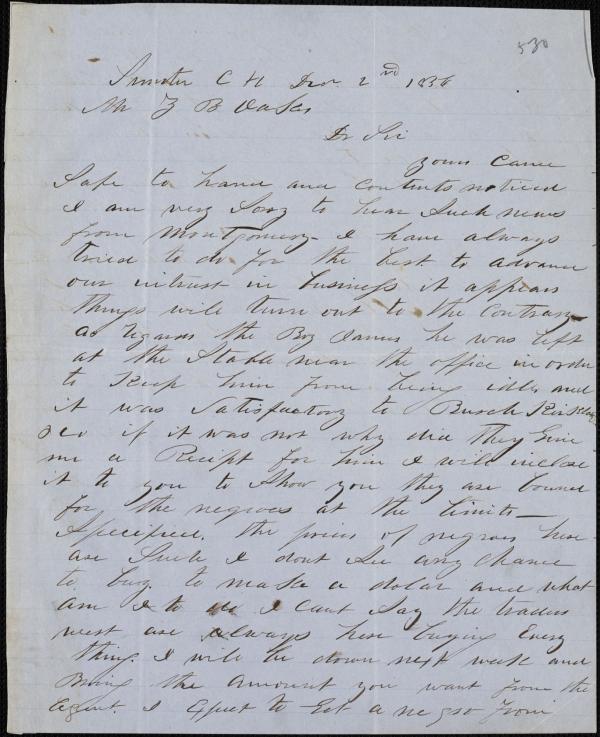 530
Sumter C H Dec 2nd 1856
Mr Z B Oakes
Dr Sir
yours Came
Safe to hand and contents noticed
I am very Sorry to hear Such news
from Montgomery I have always
tried to do for the best to advance
our intrust in business it appears
things will turn out to the Contrary
as regards the Boy James he was left
at the Stable near the office in order
to Keep him from being idle and
it was Satisfactory to Busch
&co if it was not why did they give
me a Recipt for him I will inclose
it to you to Show you they are bound
for the negroes at the limits
Specified. the prices of negroes here
are Such I dont See any chance
to buy to make a dolar and what
am I to do I cant Say the traders
west are always here buying Every
thing. I will be down next week and
Bring the amount you want from the
agent. I Expect to Get a negro from